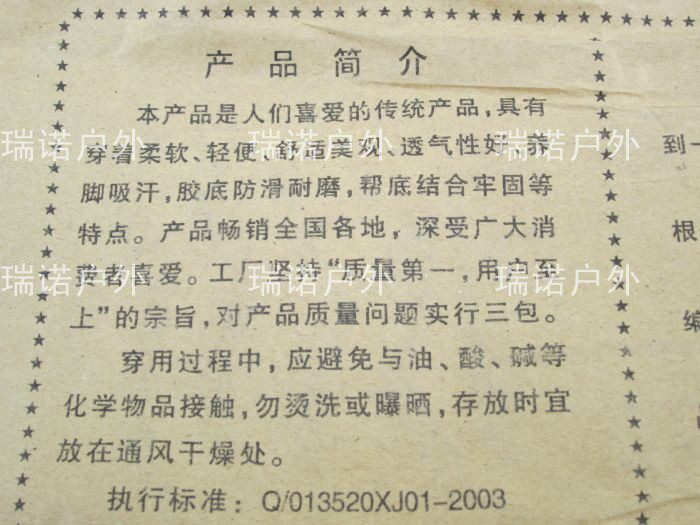 产品简介
本产品是人们喜爱的传统产品，具有
穿着柔软、轻便、舒适美观、透气性好、养
脚吸汗，胶底防滑耐磨，帮底结合牢固等
特点。产品畅销全国各地，深受广大消
费者喜爱。工厂坚持“质量第一，用户至
上”的宗旨，对产品质量问题实行三包。
穿用过程中，应避免与油、酸、碱等
化学物品接触，勿烫洗或曝晒，存放时宜
放在通风干燥处。
执行标准：Q/013520XJ01-2003
到一
根
瑞诺户外
瑞诺户外
瑞诺户外
瑞诺户外
瑞诺户外
瑞诺户外